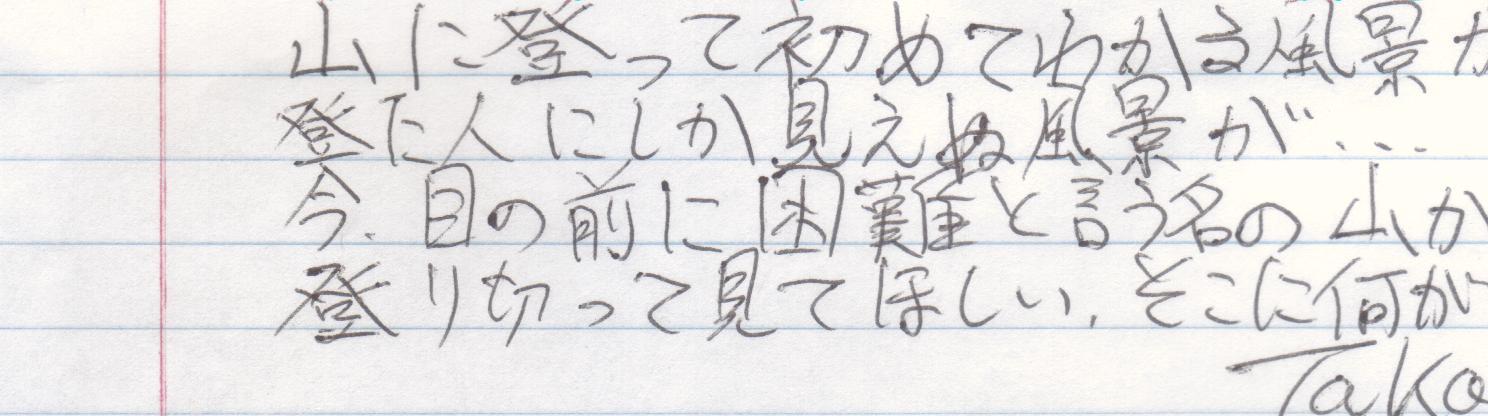 山に登って初めてわかる風景が
登た人にしか見えぬ風景が...
今.目の前に困難と言う名の山が
登り切って見てほしい.そこに何が
Tako